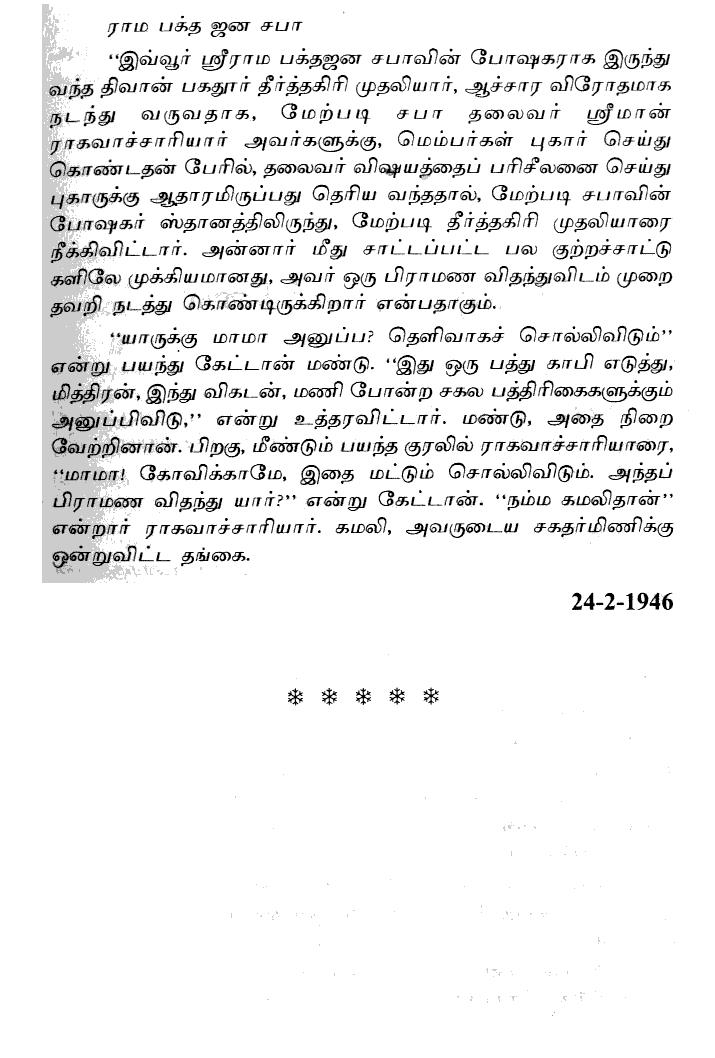 ராம பக்த ஜன சபா
“இவ்வூர் ஸ்ரீராம பக்தஜன சபாவின் போஷகராக இருந்து
வந்த திவான் பகதூர் தீர்த்தகிரி முதலியார், ஆச்சார விரோதமாக
நடந்து வருவதாக, மேற்படி சபா தலைவர் ஸ்ரீமான்
ராகவாச்சாரியார் அவர்களுக்கு, மெம்பர்கள் புகார் செய்து
கொண்டதன் பேரில், தலைவர் விஷயத்தைப் பரிசீலனை செய்து
புகாருக்கு ஆதாரமிருப்பது தெரிய வந்ததால், மேற்படி சபாவின்
போஷகர் ஸ்தானத்திலிருந்து, மேற்படி தீர்த்தகிரி முதலியாரை
நீக்கிவிட்டார். அன்னார் மீது சாட்டப்பட்ட பல குற்றச்சாட்டு
களிலே முக்கியமானது, அவர் ஒரு பிராமண விதந்துவிடம் முறை
தவறி நடத்து கொண்டிருக்கிறார் என்பதாகும்.
“யாருக்கு மாமா அனுப்ப? தெளிவாகச் சொல்லிவிடும்”
என்று பயந்து கேட்டான் மண்டு. “இது ஒரு பத்து காபி எடுத்து,
மித்திரன், இந்து விகடன், மணி போன்ற சகல பத்திரிகைகளுக்கும்
அனுப்பிவிடு,” என்று உத்தரவிட்டார். மண்டு, அதை நிறை
வேற்றினான். பிறகு, மீண்டும் பயந்த குரலில் ராகவாச்சாரியாரை,
“மாமா! கோவிக்காமே, இதை மட்டும் சொல்லிவிடும். அந்தப்
பிராமண விதந்து யார்?” என்று கேட்டான். “நம்ம கமலிதான்”
என்றார் ராகவாச்சாரியார். கமலி, அவருடைய சகதர்மிணிக்கு
ஒன்றுவிட்ட தங்கை.
24-2-1946